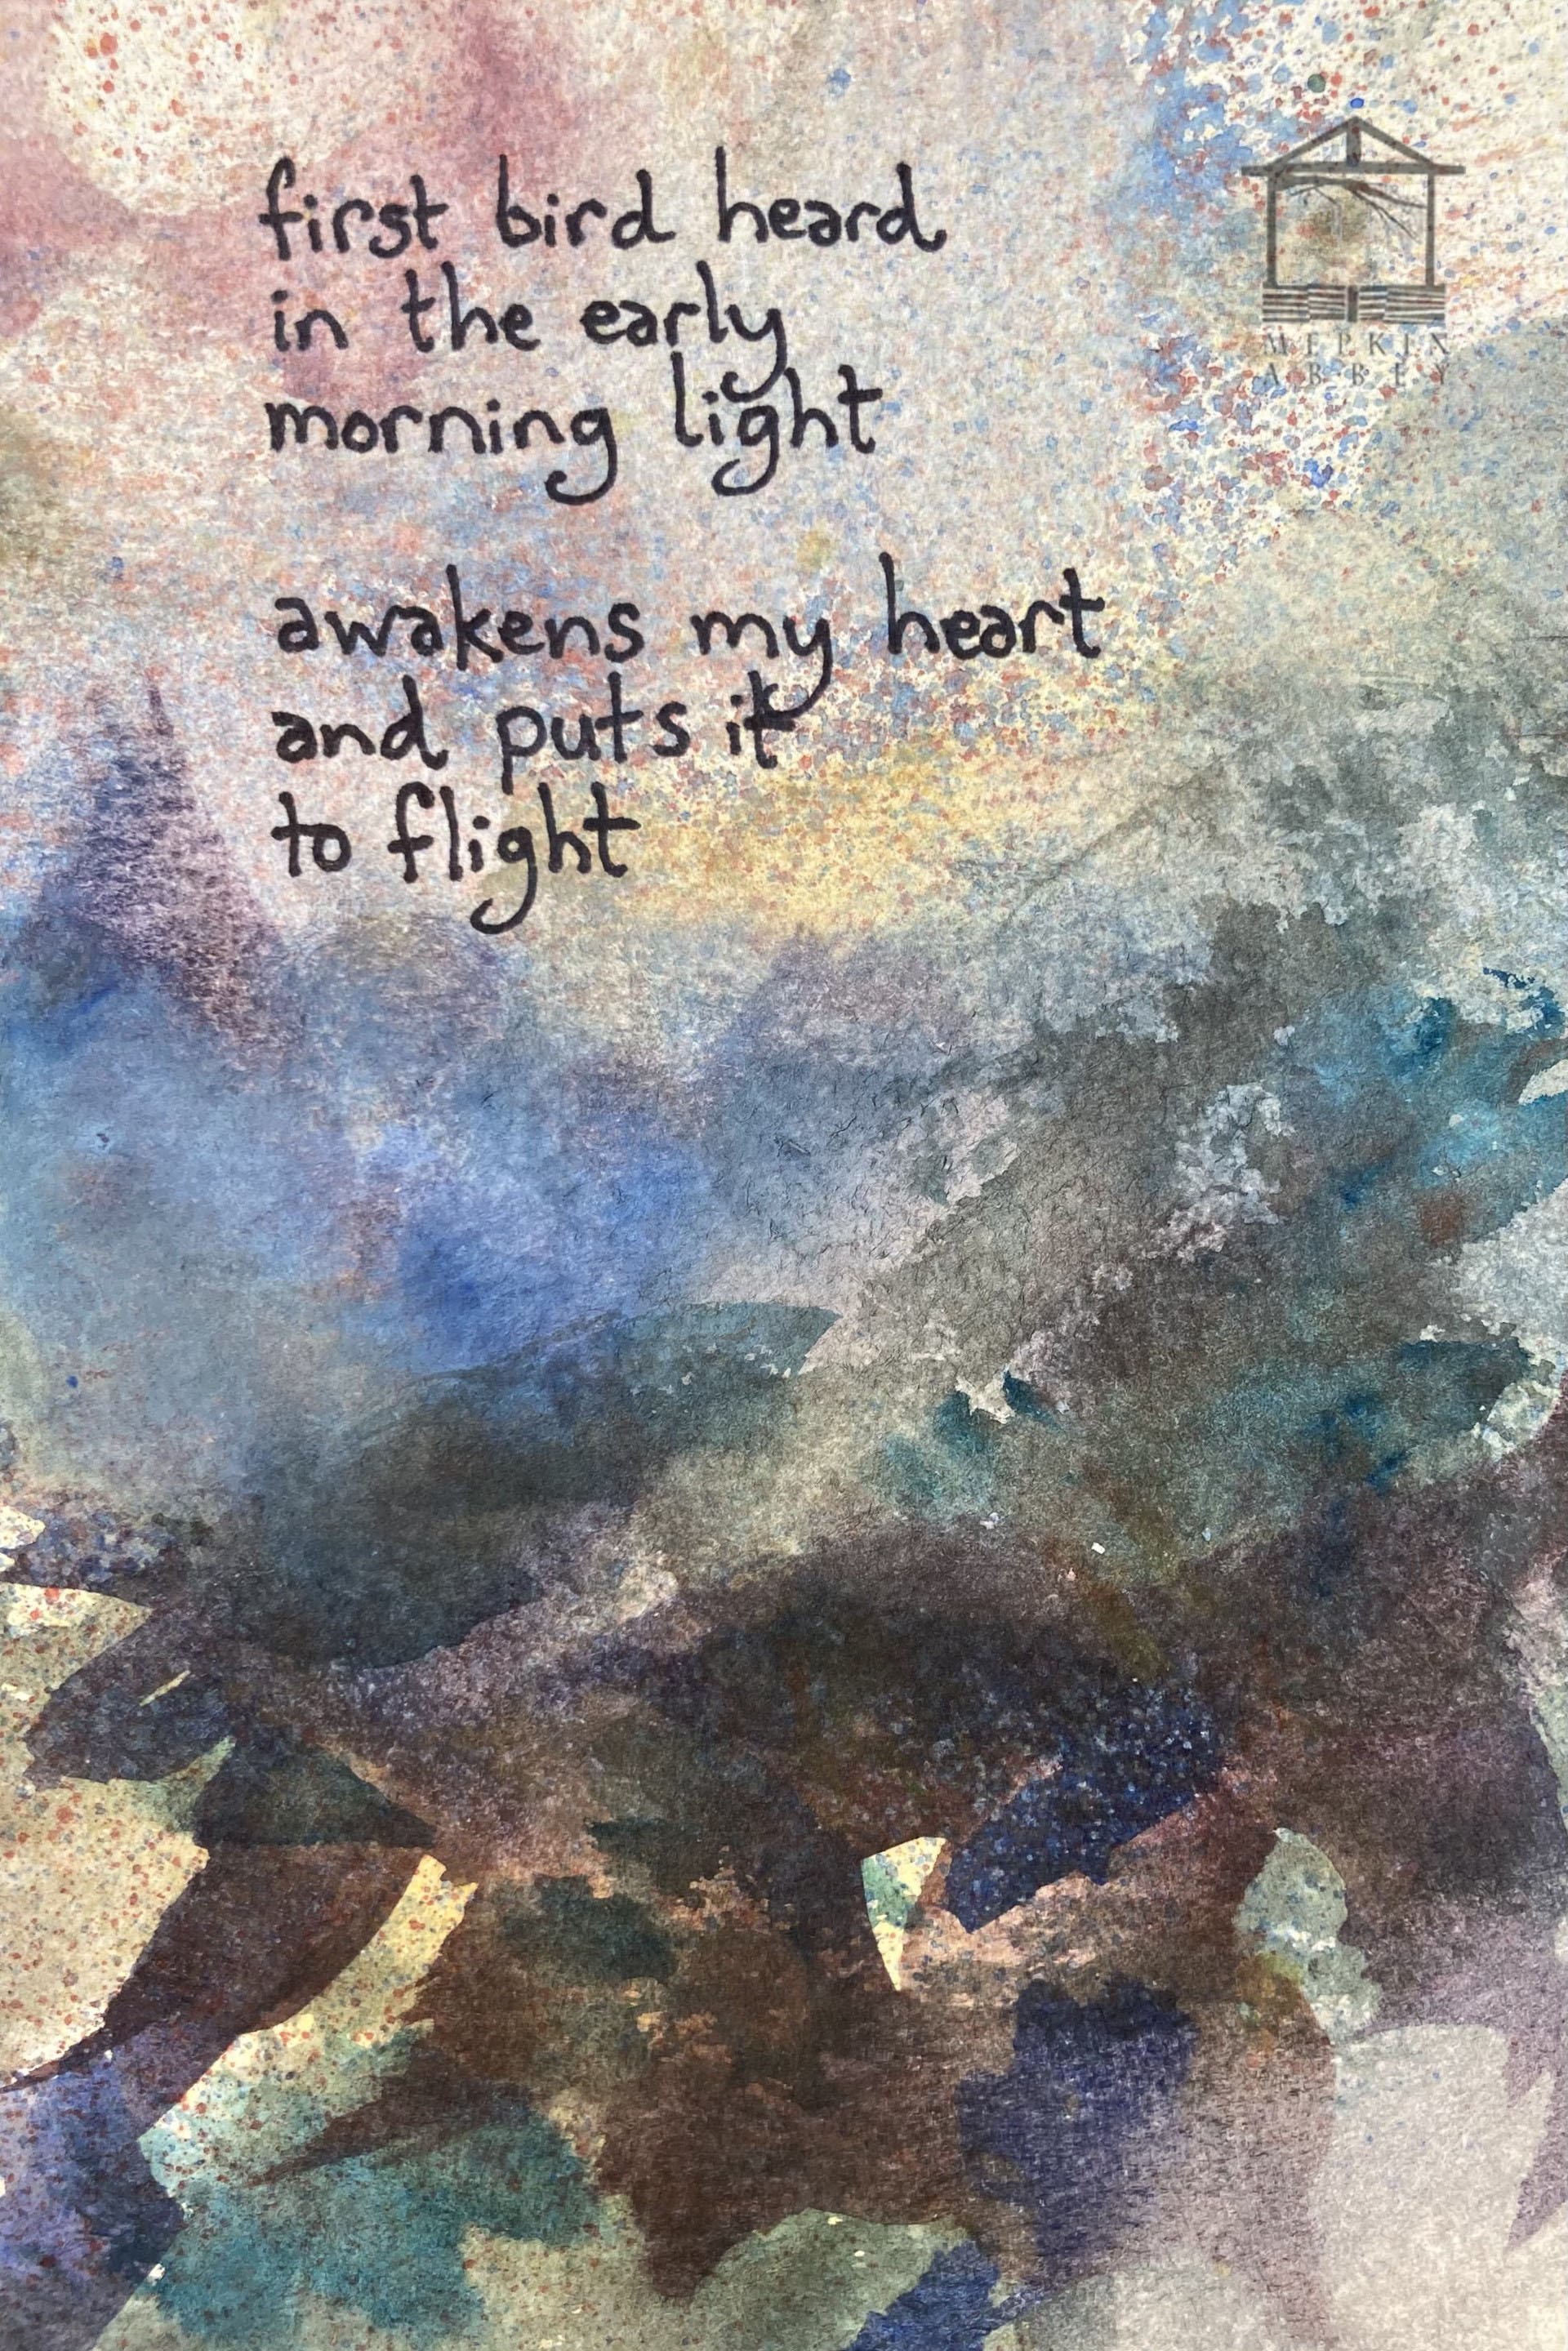 first bird heard
in the early
morning light
awakens my heart
and puts it
to flight
MEPKIN
ABBEY